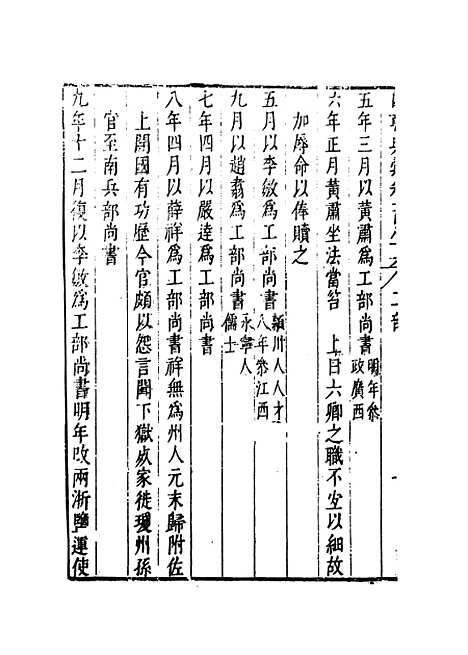 五年三月以黃肅為工部尚書明年叅政廣西
六年正月黃肅坐法當笞　上曰六卿之職不宜以細故
加辱命以俸贖之
五月以李敏為工部尚書潁川人人才八年叅江西
九月以趙翥為工部尚書永寧人儒士
七年四月以嚴達為工部尚書
八年四月以薛祥為工部尚書祥無為州人元末歸附佐
上開國有功歷今官頗以怨言聞下獄死家徙瓊州孫
官至南兵部尚書
九年十二月復以李敏為工部尚書明年改兩浙鹽運使